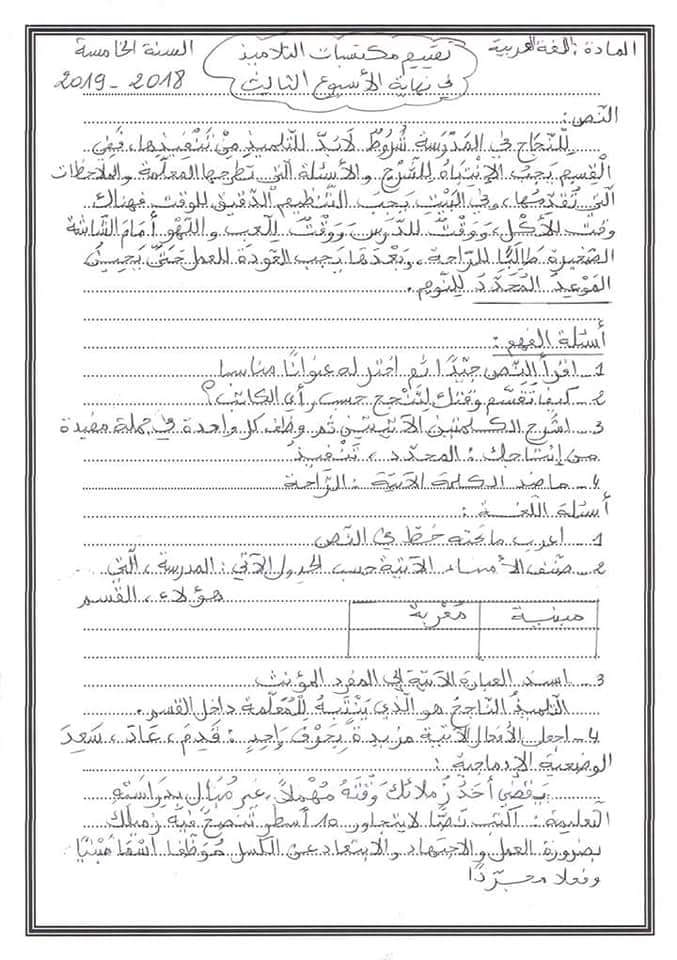 المادة: اللغة العربية تقييم مكتسبات التلاميذ السنة الخامسة
في نهاية الأسبوع الثالث 2018 - 2019
النص:
لِلنَّجَاحِ فِي المَدْرَسَةِ شُرُوطٌ لَابُدَّ لِلتِّلْمِيذِ مِنْ تَنْفِيذِهَا، فَفِي
القِسْمِ يَجِبُ الِانْتِبَاهُ لِلشَّرْحِ والأسئلة التي تطرحها المعلّمة والملاحظات
الّتي تُقَدِّمُهَا، وفي البَيْتِ يَجِبُ التَّنْظِيمُ الدَّقِيقُ لِلوقتِ فهناك
وقتٌ للأكْلِ، وَوَقْتٌ للدَّرْسِ وَوقْتٌ لِلَّعِبِ واللَّهْوِ أَمَامَ الشَّاشَةِ
الصَّغِيرَةِ طَالِبًا للرّاحة، وبَعْدَهَا يَجِبُ العَوْدَةُ للعملِ حَتَّى يَحِينُ
المَوْعِدُ المُحَدَّدُ للنوم.
أسئلة الفهم:
1- اقرأ النّص جيّدًا ثم اختر له عنوانًا مناسبا
2- كيف تُقَسِّم وقتك لِتَنْجح حسب رأي الكاتب؟
3- اشرح الكلمتين الآتيتين ثم وظف كل واحدة في جملة مفيدة
من إنتاجك: المحدّد، تَنْفيذ
4- ما ضد الكلمة الآتية: الرّاحة
أسئلة اللغة:
1- اعرب ما تحته خطّ في النّص
2- صنّف الأسماء الآتية حسب الجدول الآتي: المدرسة، الّتي
هؤلاء، القسم
مبنية مُعْرَبة
3- اسند العبارة الآتية إلى المفرد المؤنث
التلميذُ النّاجحُ هو الّذي يَنْتَبِهُ لِلْمُعلّمة داخل القسم.
4- اجعل الأفعال الآتية مزيدة بِحَرْفٍ وَاحِدٍ: قَدِمَ، عَادَ، سَعِدَ
الوضعية الإدماجية:
يَقضِي أحَدُ زُملائكَ وَقْتَهُ مُهْمِلًا، غير مُبَالٍ بِدِرَاسَتِهِ
التّعليمة: أكتب نَصًّا لا يتجاوز 10 أسطر تنصحُ فيه زميلك
بضرورة العمل والاجتهاد والابتعاد عن الكسل مُوَظِّفًا اسْمًا مَبْنِيًّا
وفعلا مجرّدًا